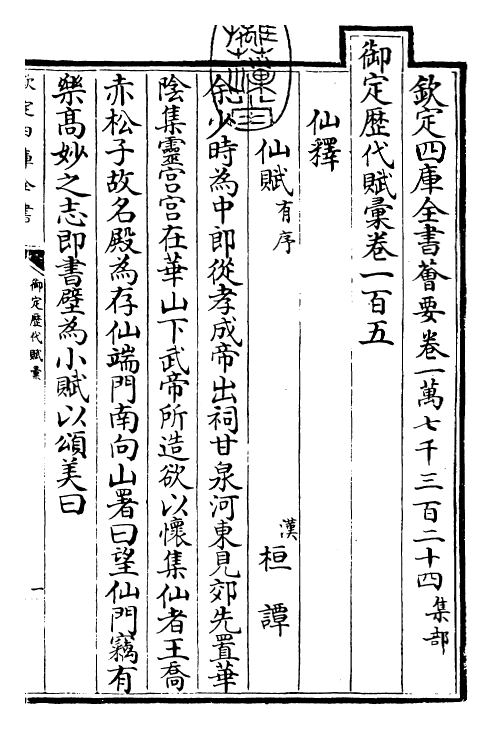 欽定四庫全書薈要卷一萬七千三百二十四 集部
御定歴代賦彙卷一百五
仙釋
仙賦 有序 漢 桓譚
余少時為中郎從孝成帝出祠甘泉河東見郊先置華
陰集靈宫宫在華山下武帝所造欲以懷集仙者王喬
赤松子故名殿為存仙端門南向山署曰望仙門竊有
樂髙妙之志即書壁為小賦以頌美曰
欽定四庫全書
御定歴代賦彙
一